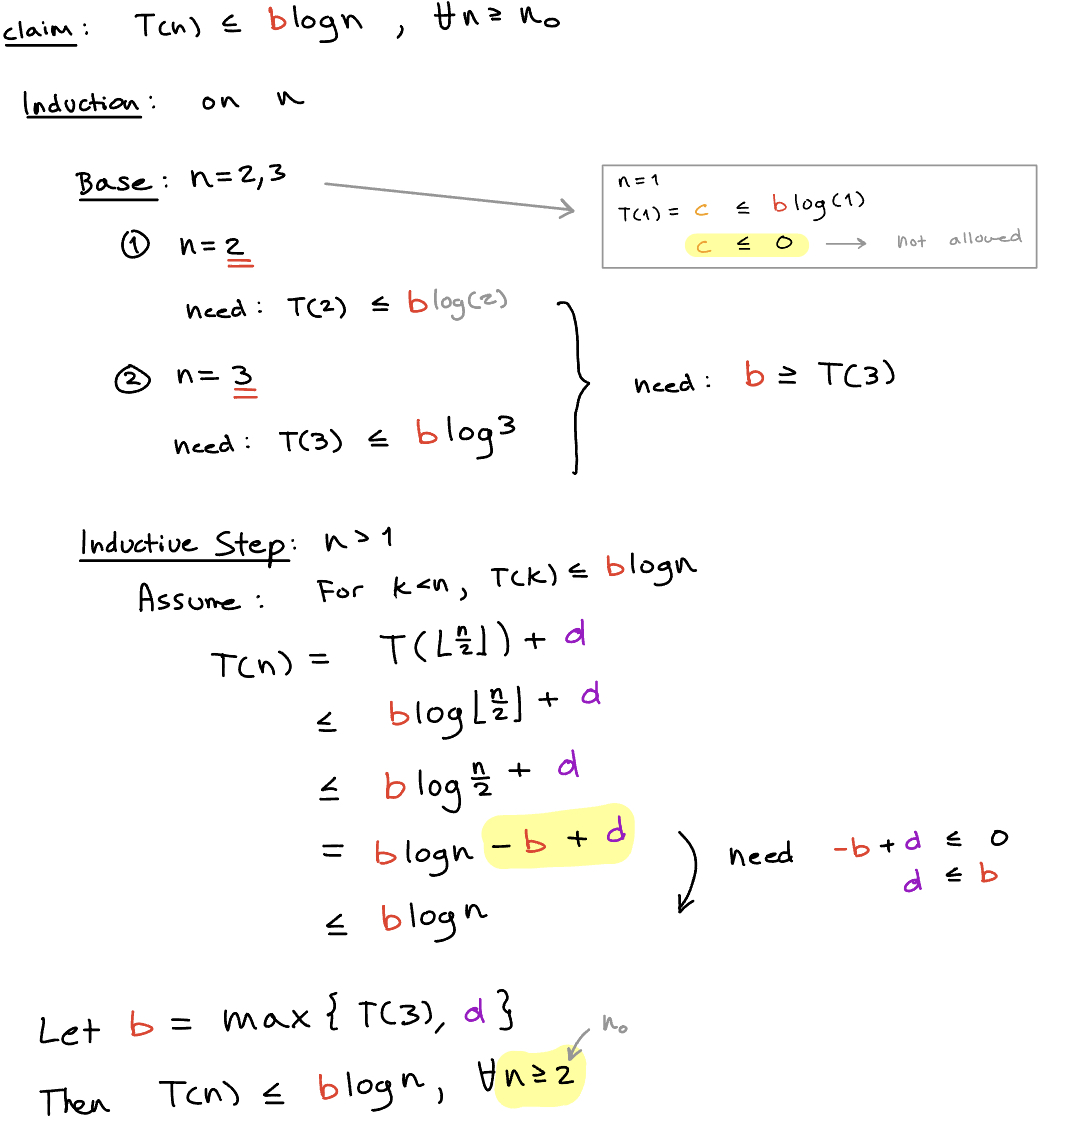 claim: T(n) ≤ b log n , ∀n ≥ n₀
Induction: on n
Base: n=2,3
n=1
T(1) = c ≤ b log(1)
c ≤ 0 → not allowed
① n=2
need: T(2) ≤ b log(2)
② n=3
need: T(3) ≤ b log 3
need: b ≥ T(3)
Inductive Step: n > 1
Assume: For k<n, T(k) ≤ b log n
T(n) = T(⌊n/2⌋) + d
≤ b log ⌊n/2⌋ + d
≤ b log n/2 + d
= b log n - b + d
need -b + d ≤ 0
d ≤ b
≤ b log n
Let b = max { T(3), d }
n₀
Then T(n) ≤ b log n, ∀n ≥ 2